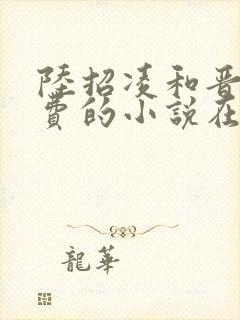 陸招凌和晋
費的小說在
龍華